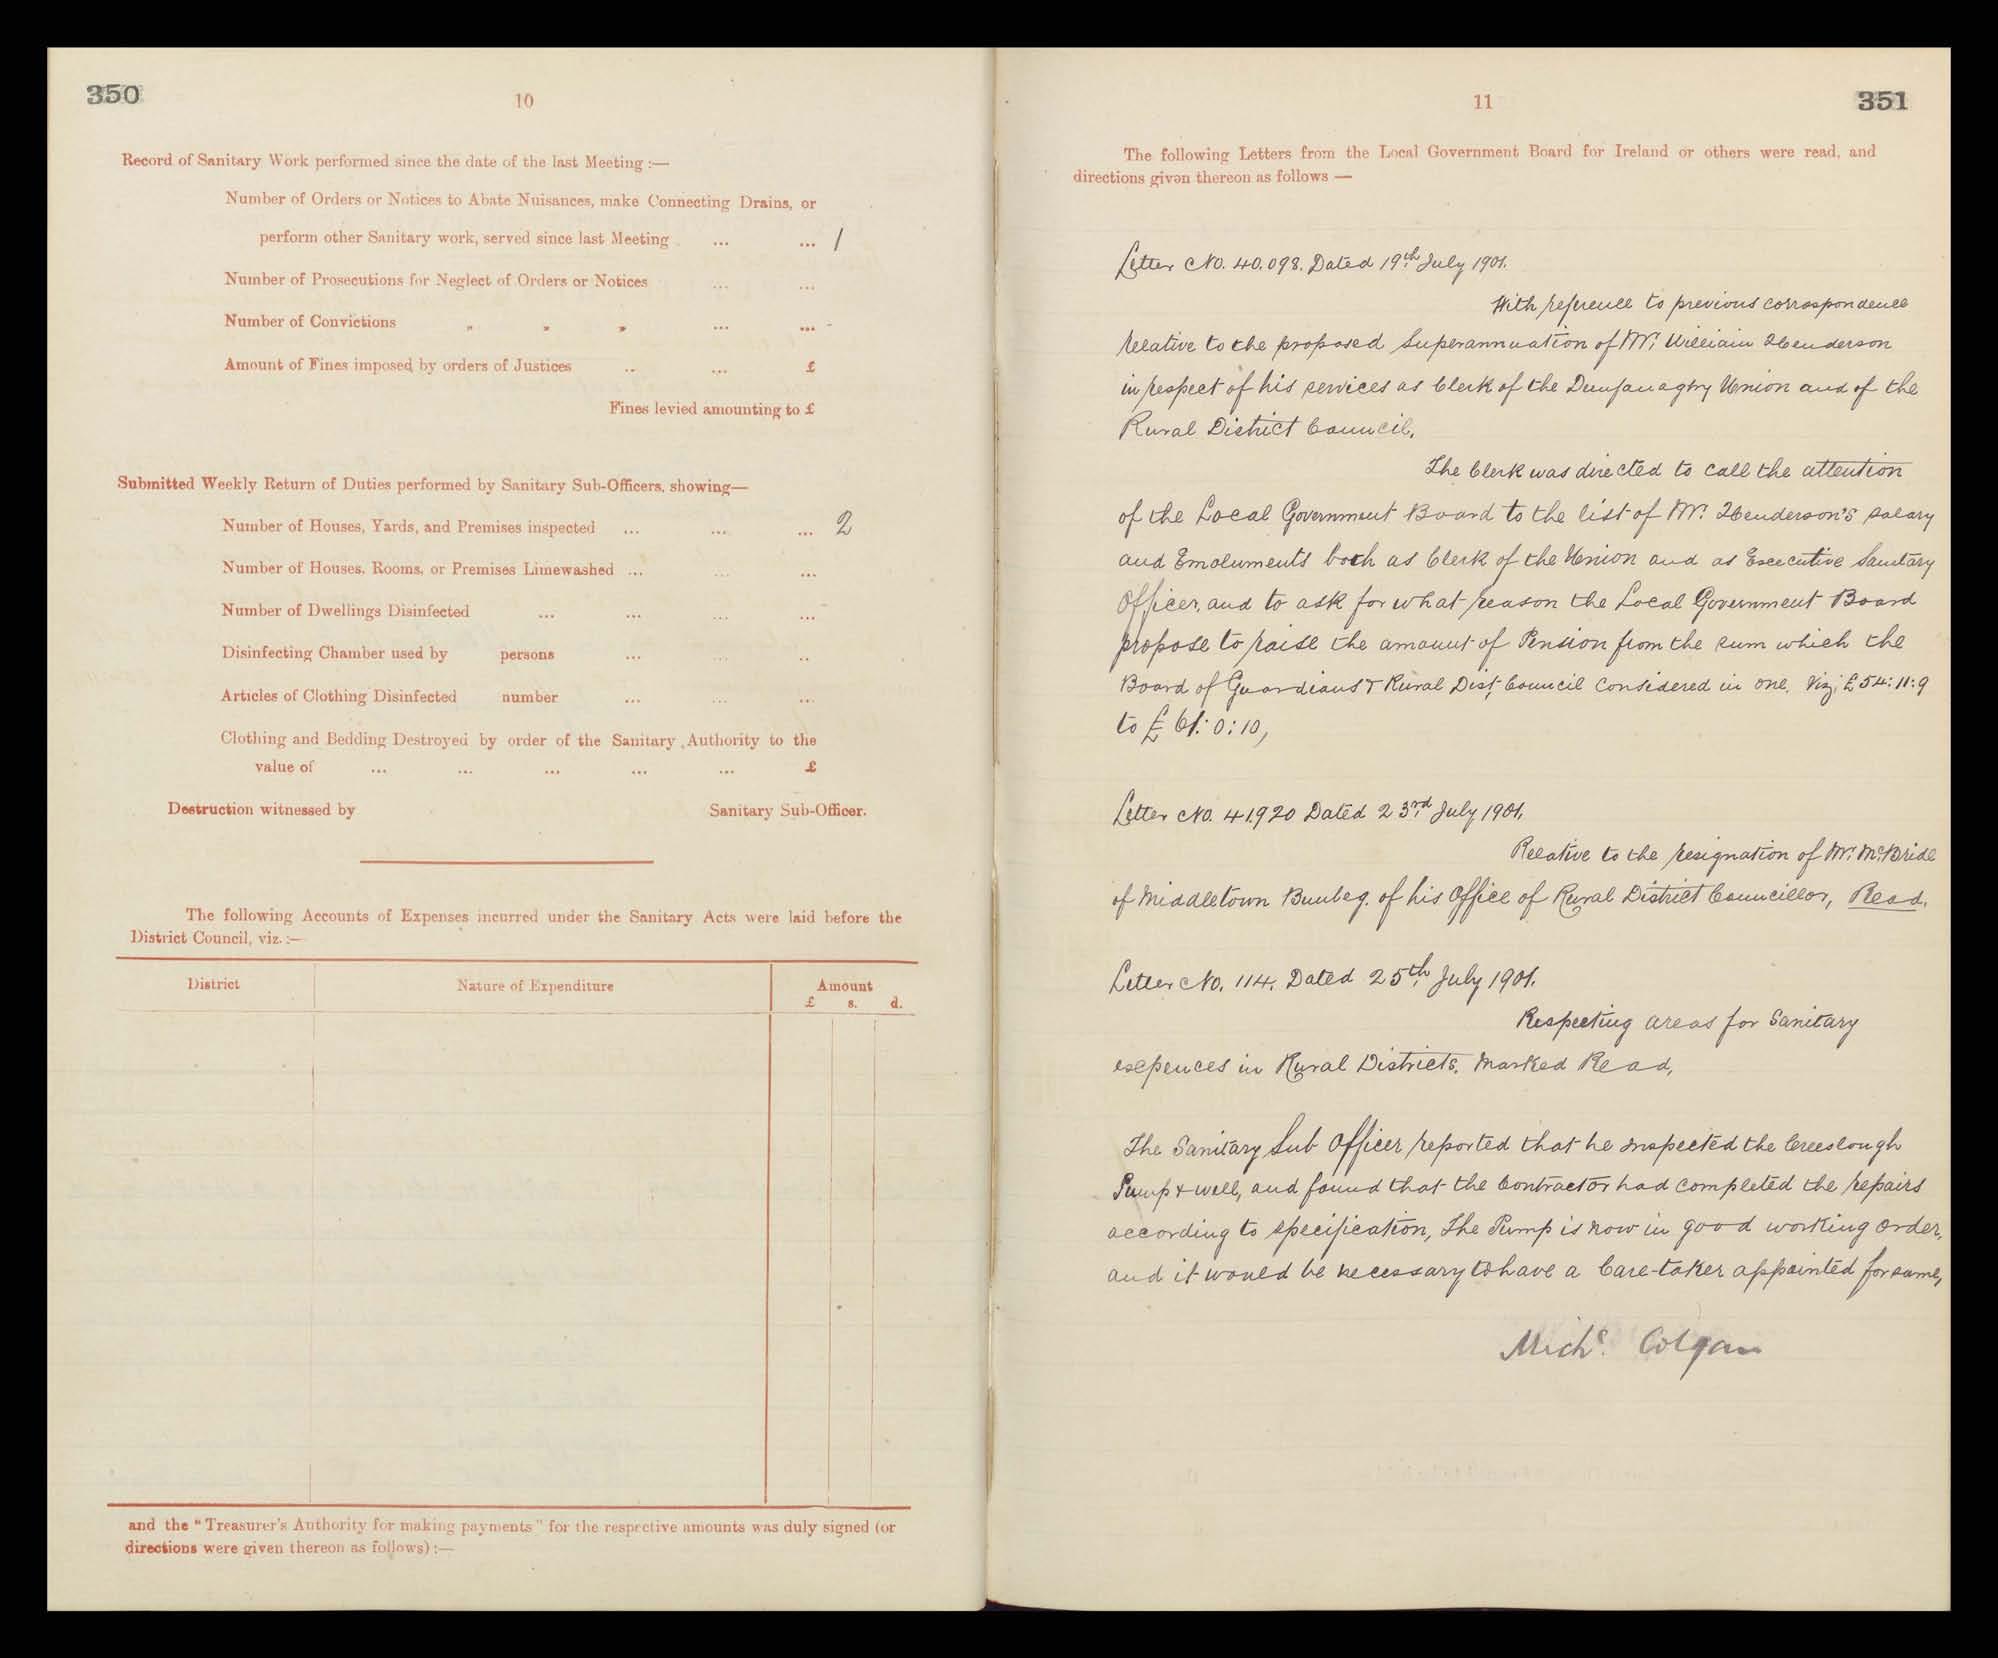 350
10
Record of Sanitary Work performed since the date of the last Meeting :—
Number of Orders or Notices to Abate Nuisances, make Connecting Drains, or
perform other Sanitary work, served since last Meeting ... ... 1
Number of Prosecutions for Neglect of Orders or Notices ... ...
Number of Convictions „ „ „ ... ...
Amount of Fines imposed by orders of Justices .. ... £
Fines levied amounting to £
Submitted Weekly Return of Duties performed by Sanitary Sub-Officers, showing—
Number of Houses, Yards, and Premises inspected ... ... ... 2
Number of Houses, Rooms, or Premises Limewashed ... ... ...
Number of Dwellings Disinfected ... ... ... ...
Disinfecting Chamber used by persons ... ... ..
Articles of Clothing Disinfected number ... ... ...
Clothing and Bedding Destroyed by order of the Sanitary Authority to the
value of ... ... ... ... ... £
Destruction witnessed by Sanitary Sub-Officer.
The following Accounts of Expenses incurred under the Sanitary Acts were laid before the
District Council, viz. :—
District Nature of Expenditure Amount
£ s. d.
and the "Treasurer's Authority for making payments" for the respective amounts was duly signed (or
directions were given thereon as follows) :—
11
351
The following Letters from the Local Government Board for Ireland or others were read, and
directions given thereon as follows —
Letter No. 40.098. Dated 19th July 1901.
With reference to previous correspondence
relative to the proposed Superannuation of Mr. William Henderson
in respect of his services as Clerk of the Dunfanaghy Union and of the
Rural District Council,
The Clerk was directed to call the attention
of the Local Government Board to the list of Mr. Henderson's salary
and Emoluments both as Clerk of the Union and as Executive Sanitary
Officer, and to ask for what reason the Local Government Board
propose to raise the amount of Pension from the sum which the
Board of Guardians & Rural Dist. Council considered in one, Viz; £54:11:9
to £61:0:10,
Letter No. 41.920 Dated 23rd July 1901.
Relative to the resignation of Mr. McBride
of Middletown Bunbeg. of his Office of Rural District Councillor, Read.
Letter No. 114. Dated 25th July 1901.
Respecting areas for Sanitary
expences in Rural Districts. Marked Read,
The Sanitary Sub Officer reported that he inspected the Creeslough
Pump & well, and found that the Contractor had completed the repairs
according to specification, The Pump is now in good working order,
and it would be necessary to have a Care-taker appointed for same,
Michl. Colgan